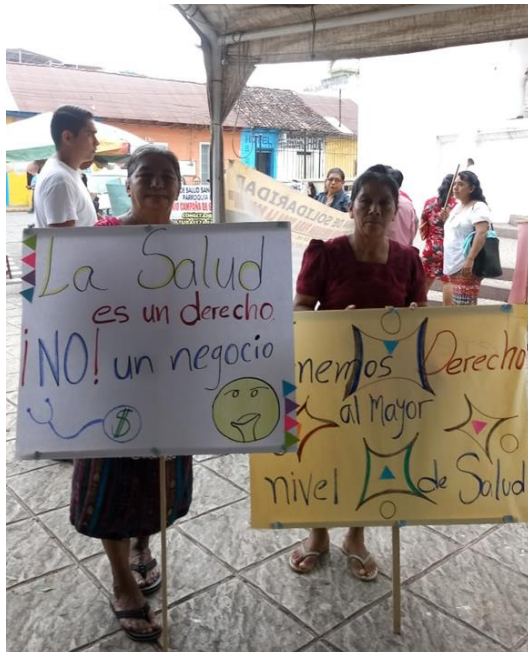 La Salud
es un derecho.
¡NO! un negocio
$
nemos Derecho
al Mayor
nivel de Salud
SOLIDARIDAD
PARROQUIA
HOTEL